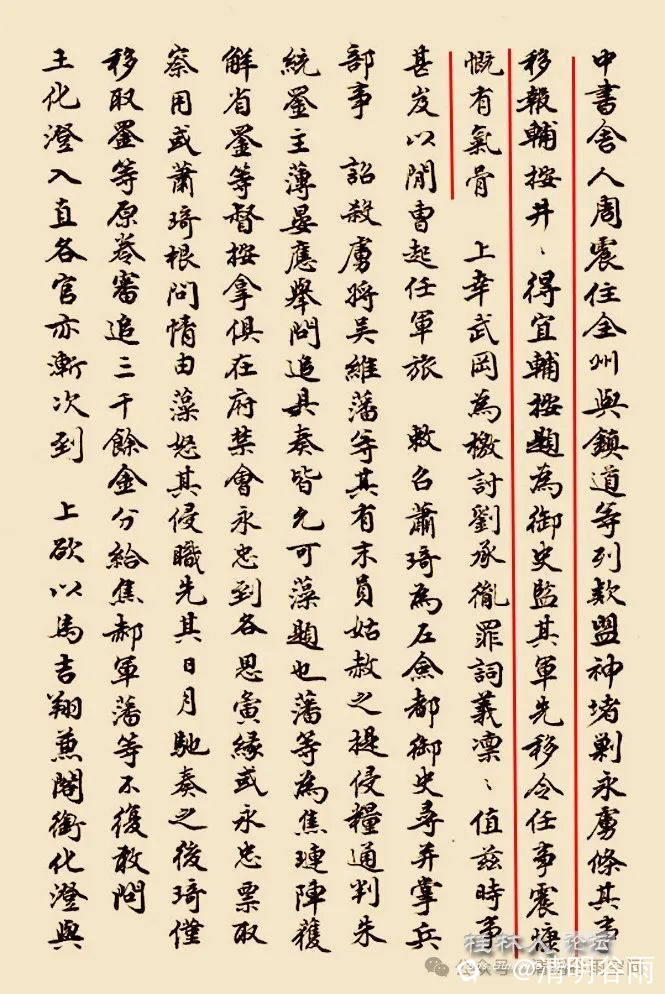 中書舍人周震住全州與鎮道等列欵盟神堵剿永虜條其事
移報輔按井、得宜輔按題為御史監其軍先移令任事震慷
慨有氣骨　上幸武岡為檄討劉承胤罪詞義凜、值茲時事
甚岌以閒曹起任軍旅　敕召蕭琦為左僉都御史尋弁掌兵
部事　詔殺虜將吳維藩等其有末員姑赦之提侵糧通判朱
統鋆主薄晏應舉問追具奏皆允可藻題也藩等為焦璉陣獲
解省鋆等督按拿俱在府禁會永忠到各思寅緣或永忠票取
察用或蕭琦根問情由藻怒其侵職先其日月馳奏之後琦僅
移取鋆等原卷審追三千餘金分給焦郝軍藩等不復敢問
王化澄入直各官亦漸次到　上欲以馬吉翔兼閣銜化澄與
桂林人论坛
公众号
@清明谷雨